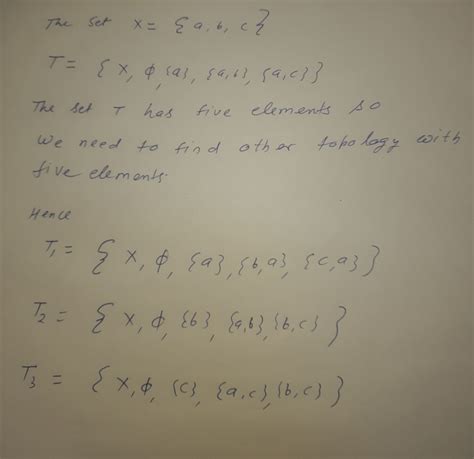 The set X = {a, b, c}
T = { X, ϕ, {a}, {a,b}, {a,c}}
The set T has five elements so
we need to find other topology with
five elements
Hence
T₁ = { X, ϕ, {a}, {b,a}, {c,a}}
T₂ = { X, ϕ, {b}, {a,b}, {b,c} }
T₃ = { X, ϕ, {c}, {a,c}, {b,c} }